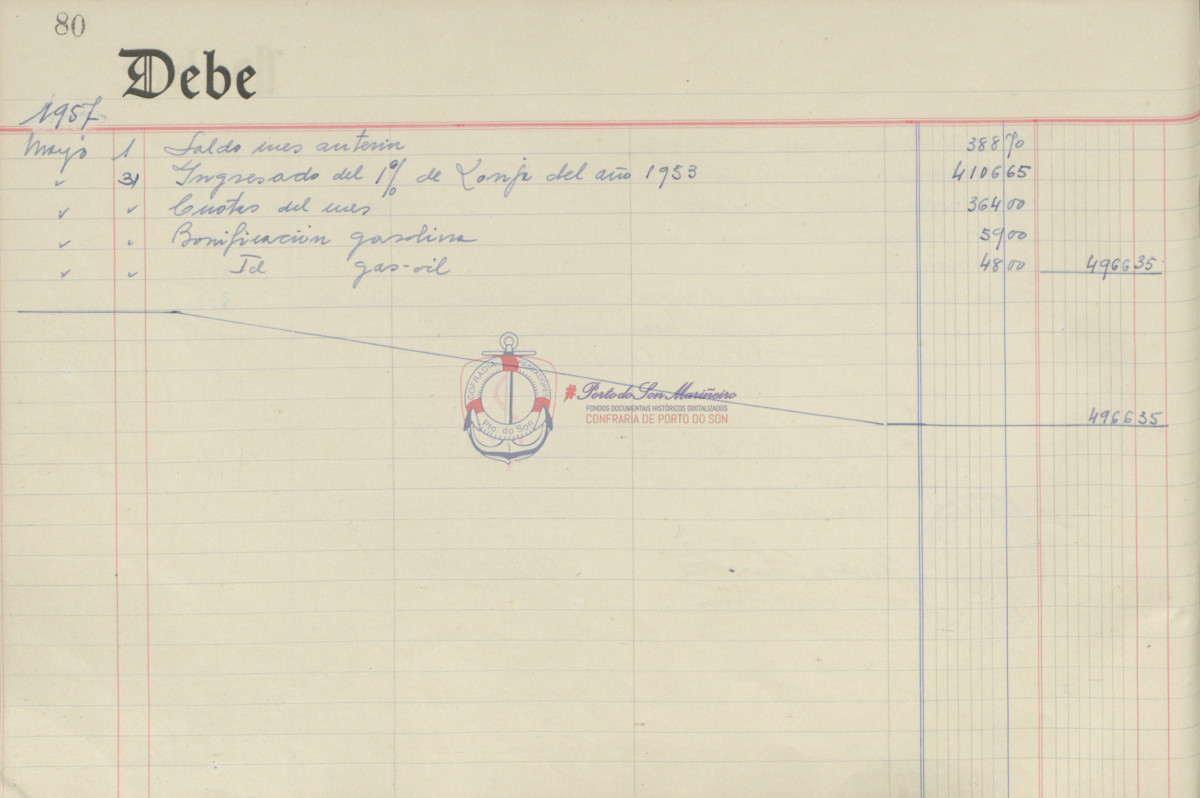 80
Debe
1957
Mayo 1 Saldo mes anterior 388 70
" 31 Ingresado del 1% de Lonja del año 1953 4106 65
" " Cuotas del mes 364 00
" " Bonificación gasolina 59 00
" " Id gas-oil 48 00 4966 35
COFRADIA PESCADORES
Pto. do Son
#Porto do Son Mariñeiro
FONDOS DOCUMENTAIS HISTÓRICOS DIXITALIZADOS
CONFRARIA DE PORTO DO SON
4966 35